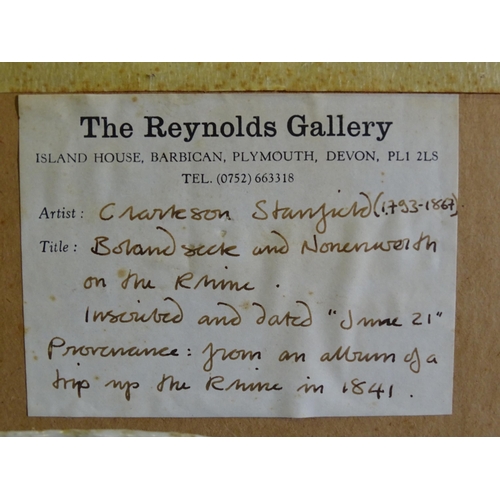 The Reynolds Gallery
ISLAND HOUSE, BARBICAN, PLYMOUTH, DEVON, PL1 2LS
TEL. (0752) 663318
Artist : Clarkson Stanfield (1793-1867).
Title : Bolandseck and Nonenworth
on the Rhine .
Inscribed and dated "June 21"
Provenance : from an album of a
trip up the Rhine in 1841 .